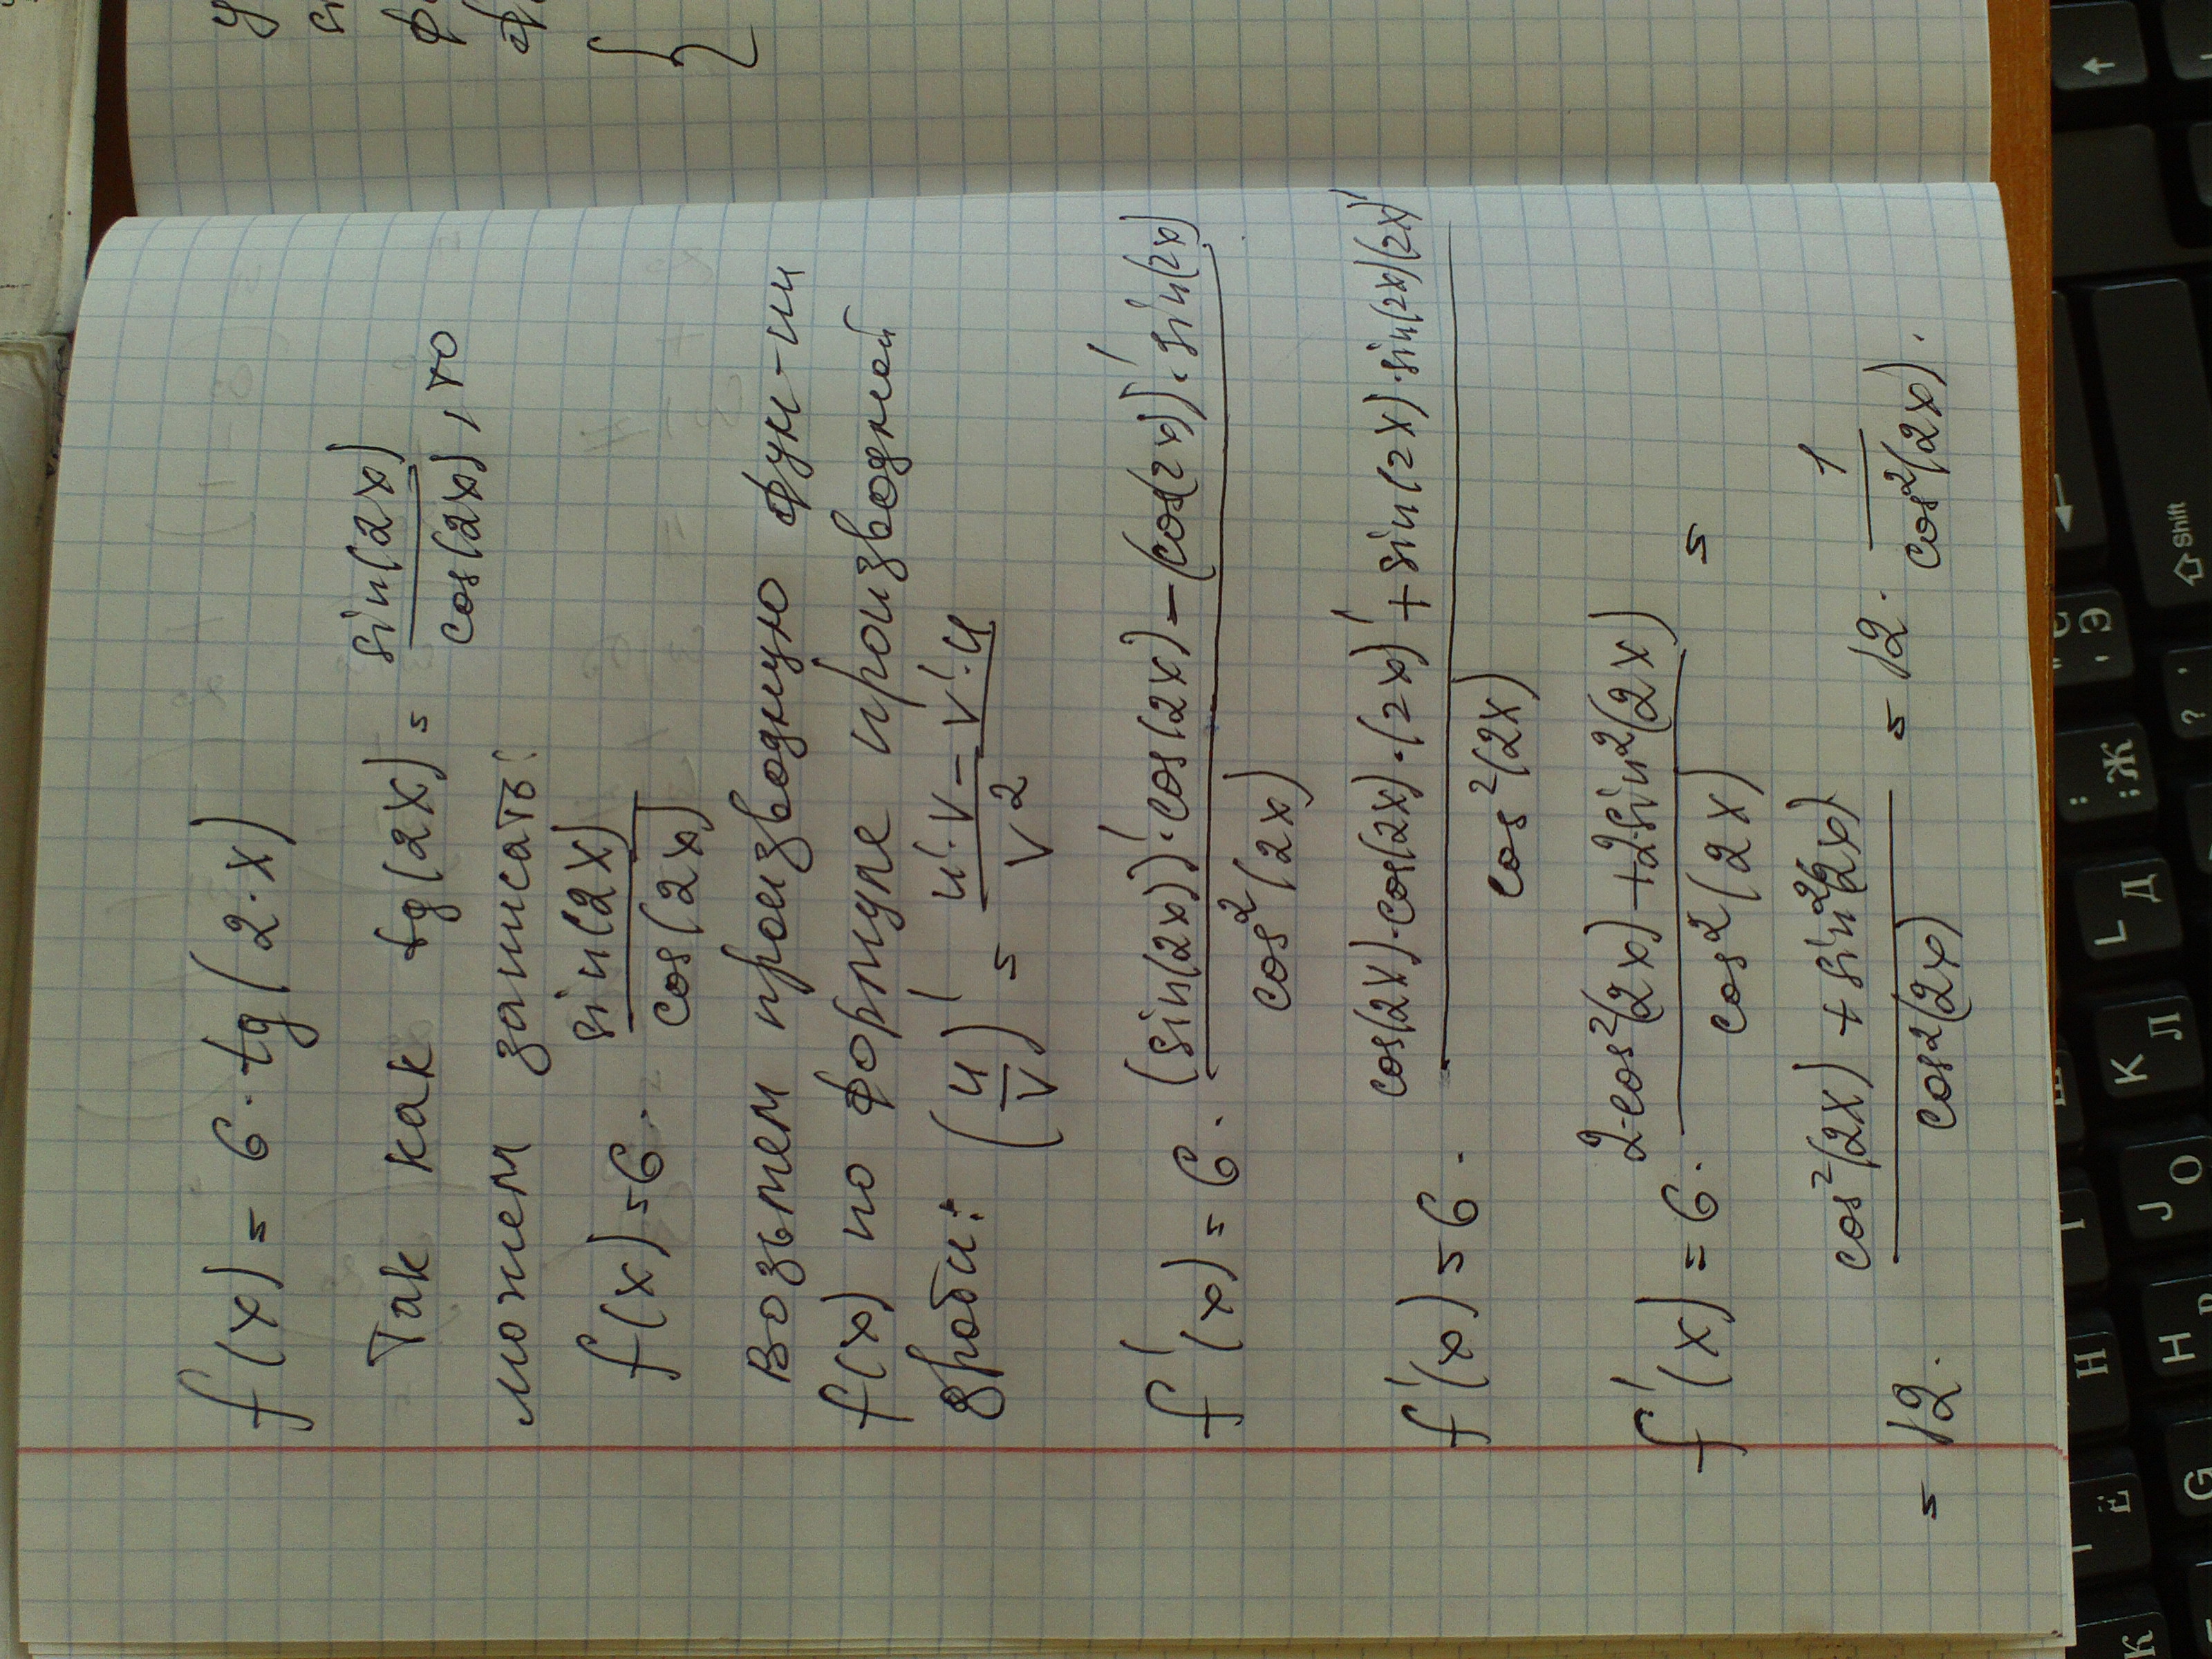 f(x) = 6 · tg(2·x)
Так как tg(2x) = sin(2x)/cos(2x), то
можем записать:
f(x) = 6 · sin(2x)/cos(2x)
Возьмем производную фун-ии
f(x) по формуле производной
дроби: (u/v)' = (u'·v − v'·u)/v²
f'(x) = 6 · ((sin(2x))'·cos(2x) − (cos(2x))'·sin(2x))/cos²(2x)
f'(x) = 6 · (cos(2x)·cos(2x)·(2x)' + sin(2x)·sin(2x)(2x)')/cos²(2x)
f'(x) = 6 · (2·cos²(2x) + 2sin²(2x))/cos²(2x) =
= 12 · (cos²(2x) + sin²(2x))/cos²(2x) = 12 · 1/cos²(2x).
shift
Э
Ж
L Д
K Л
J О
H Р
G
Ё